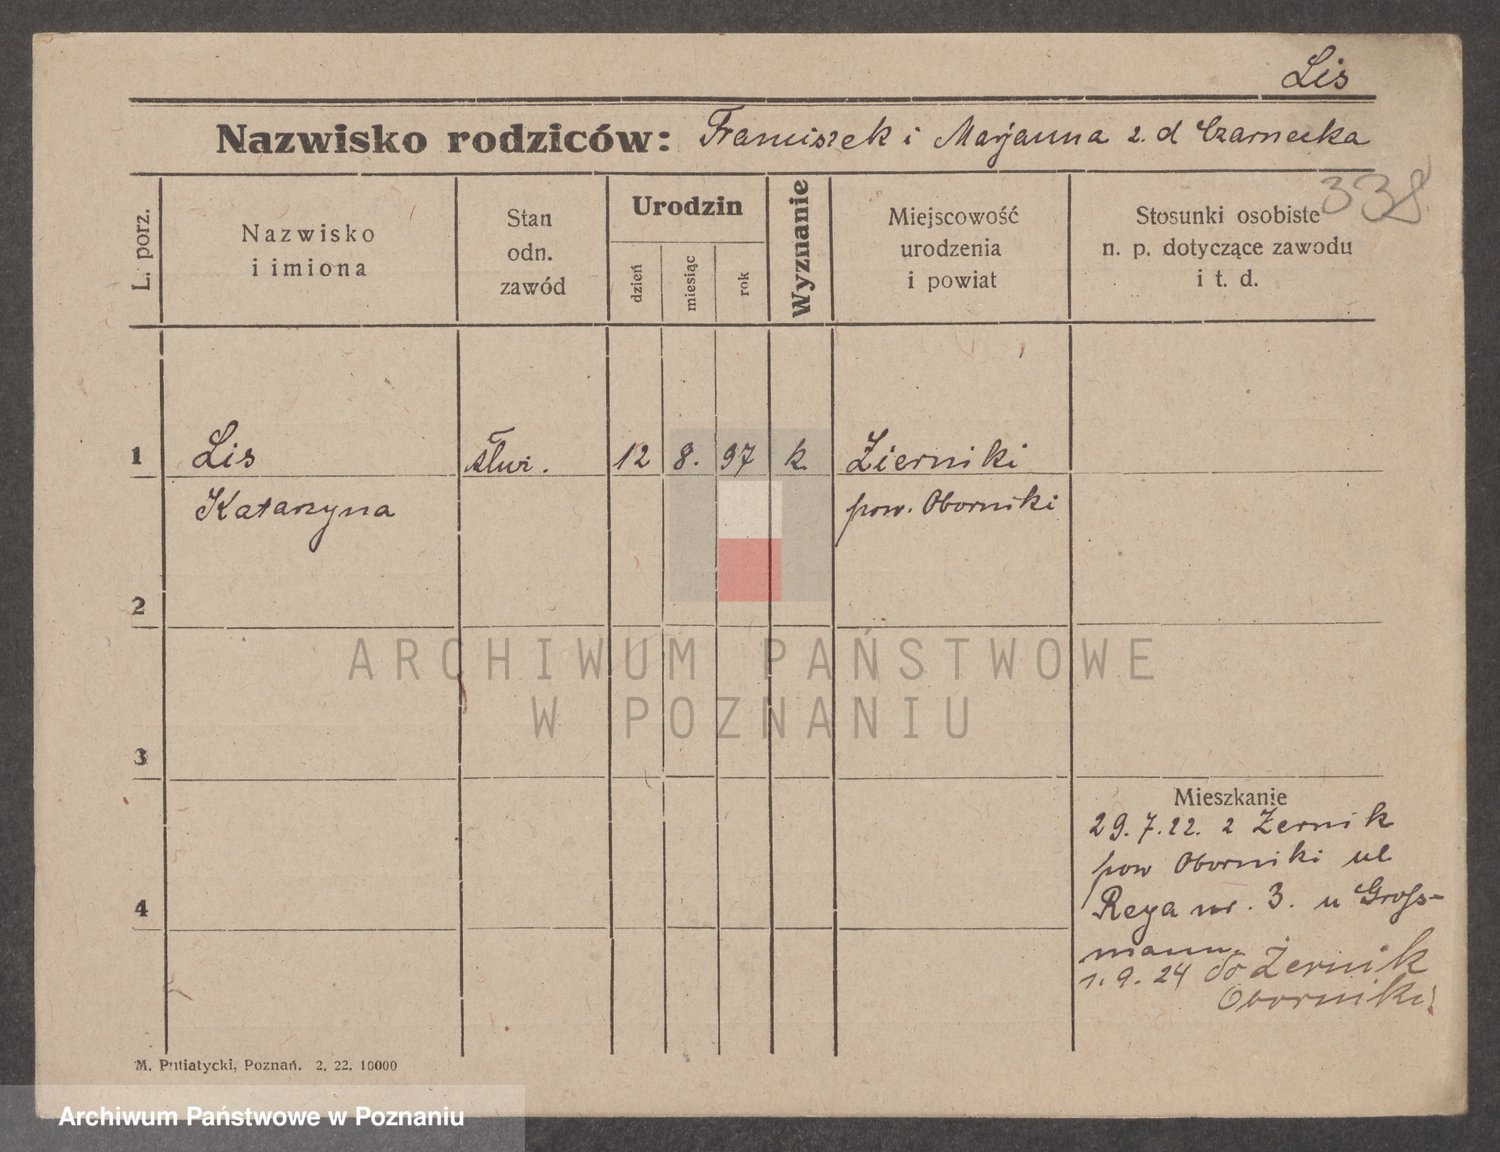 Lis
Nazwisko rodziców: Franciszek i Marjanna z. d Czarnecka
338
L. porz.
Nazwisko
i imiona
Stan
odn.
zawód
Urodzin
dzień
miesiąc
rok
Wyznanie
Miejscowość
urodzenia
i powiat
Stosunki osobiste
n. p. dotyczące zawodu
i t. d.
1 Lis służ. 12 8. 97 k. Zierniki
Katarzyna pow. Oborniki
2
ARCHIWUM PAŃSTWOWE
W POZNANIU
3
Mieszkanie
29.7.22. z Żernik
pow Oborniki ul
4
Reya nr. 3. u Gross-
mann.
1.9.24 do Żernik
Oborniki
M. Putiatycki, Poznań. 2. 22. 10000
Archiwum Państwowe w Poznaniu